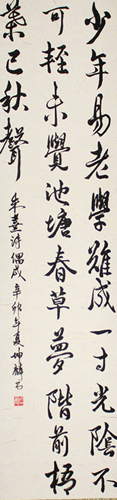 少年易老學難成一寸光陰不
可輕未覺池塘春草夢階前梧
葉已秋聲
朱熹詩偶成辛卯年夏坤麟書